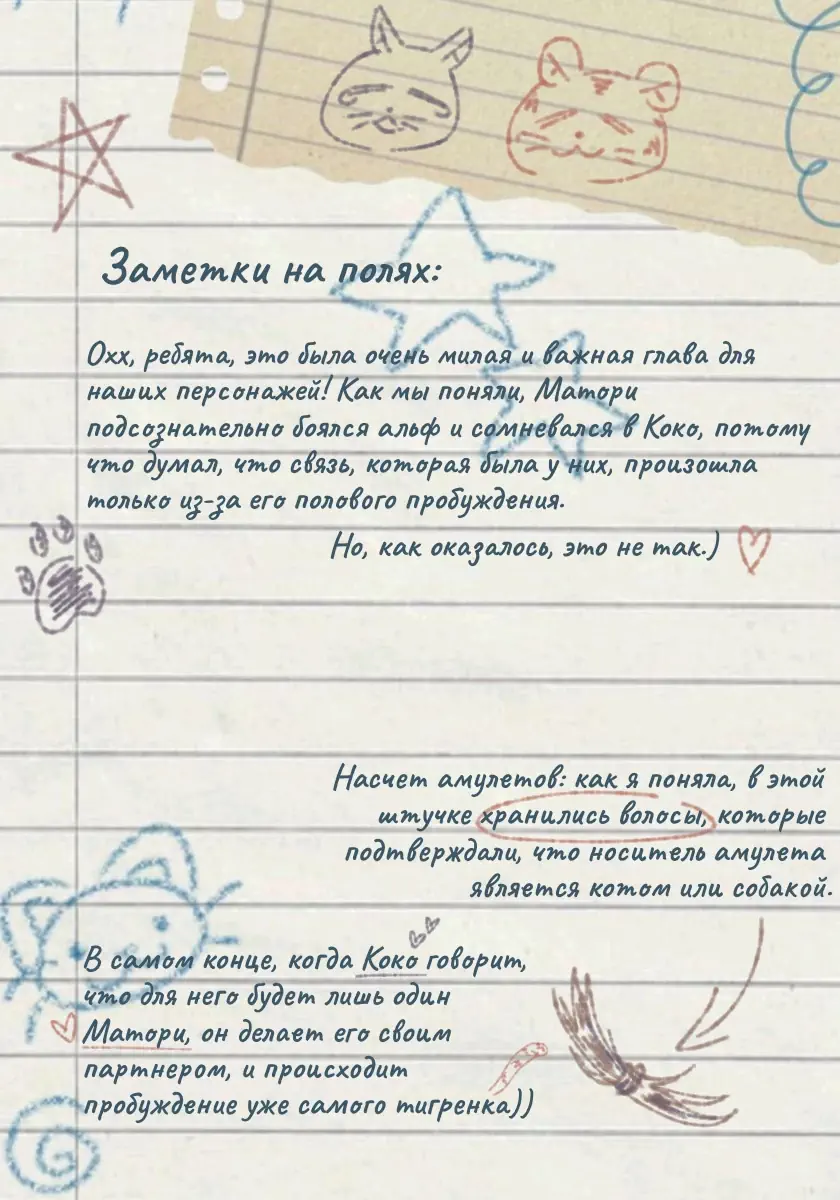 Заметки на полях:
Охх, ребята, это была очень милая и важная глава для
наших персонажей! Как мы поняли, Матори
подсознательно боялся альф и сомневался в Коко, потому
что думал, что связь, которая была у них, произошла
только из-за его полового пробуждения.
Но, как оказалось, это не так.)
Насчет амулетов: как я поняла, в этой
штучке хранились волосы, которые
подтверждали, что носитель амулета
является котом или собакой.
В самом конце, когда Коко говорит,
что для него будет лишь один
Матори, он делает его своим
партнером, и происходит
пробуждение уже самого тигренка))